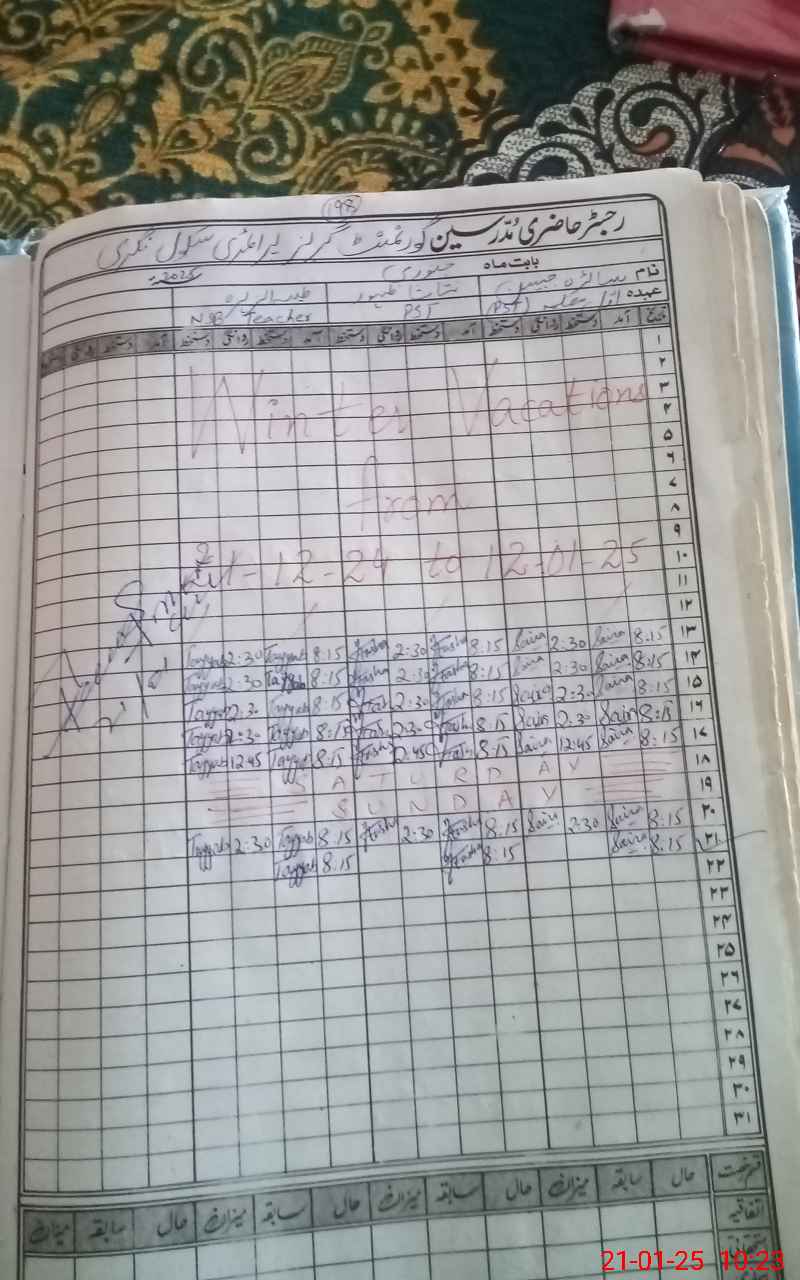 198
رجسٹر حاضری مدرسین گورنمنٹ گرلز پرائمری سکول
بابت ماہ جنوری 2025ء
نام
عہدہ (PST) PST N9B Teacher
تاریخ آمد دستخط روانگی دستخط آمد دستخط روانگی دستخط آمد دستخط روانگی دستخط آمد دستخط روانگی دستخط
۱
۲
۳ Winter Vacations
۴
۵
۶
۷ from
۸
۹
۱۰ 21-12-24 to 12-01-25
۱۱
۱۲
۱۳ Tayyab 2:30 Tayyab 8:15 2:30 8:15 Saira 2:30 Saira 8:15
۱۴ Tayyab 2:30 Tayyab 8:15 2:30 8:15 Saira 2:30 Saira 8:15
۱۵ Tayyab 2:30 Tayyab 8:15 2:30 8:15 Saira 2:30 Saira 8:15
۱۶ Tayyab 2:30 Tayyab 8:15 2:30 8:15 Saira 2:30 Saira 8:15
۱۷ Tayyab 12:45 Tayyab 8:15 2:45 8:15 Saira 12:45 Saira 8:15
۱۸ SATURDAY
۱۹ SUNDAY
۲۰ Tayyab 2:30 Tayyab 8:15 2:30 8:15 Saira 2:30 Saira 8:15
۲۱ Tayyab 8:15 8:15 Saira 8:15
۲۲
۲۳
۲۴
۲۵
۲۶
۲۷
۲۸
۲۹
۳۰
۳۱
رخصت حال سابقہ میزان حال سابقہ میزان حال سابقہ میزان حال سابقہ میزان
اتفاقیہ
21-01-25 10:23